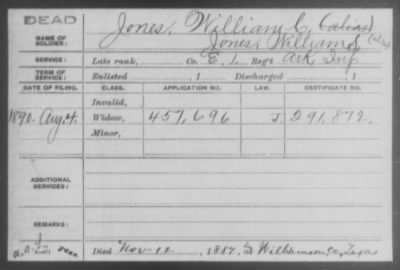 DEAD
NAME OF SOLDIER: Jones, William C. (alias)
Jones, William (alias)
SERVICE: Late rank, Co. E, 1, Reg't Ark. Inf.
TERM OF SERVICE: Enlisted , 1 Discharged , 1
DATE OF FILING. CLASS. APPLICATION NO. LAW. CERTIFICATE NO.
Invalid,
1890. Aug. 4. Widow, 457,696 J. 291,872.
Minor,
ADDITIONAL SERVICES:
REMARKS:
Died Nov 12, 1887, at Williamson Co, Texas